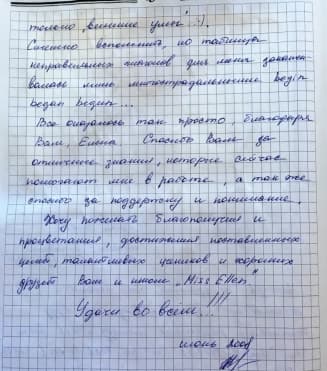 только „внешние узы" :).
Смешно вспоминать, но таблица
неправильных глаголов для меня заканчи-
валась лишь многострадальными begin
began begun...
Все оказалось так просто, благодаря
Вам, Елена Спасибо Вам за
отличные знания, которые сейчас
помогают мне в работе, а так же
спасибо за поддержку и понимание.
Хочу пожелать благополучия и
процветания, достижения поставленных
целей, талантливых учеников и хороших
друзей Вам и школе „Miss Ellen"
Удачи во всём!!!
июнь 2008